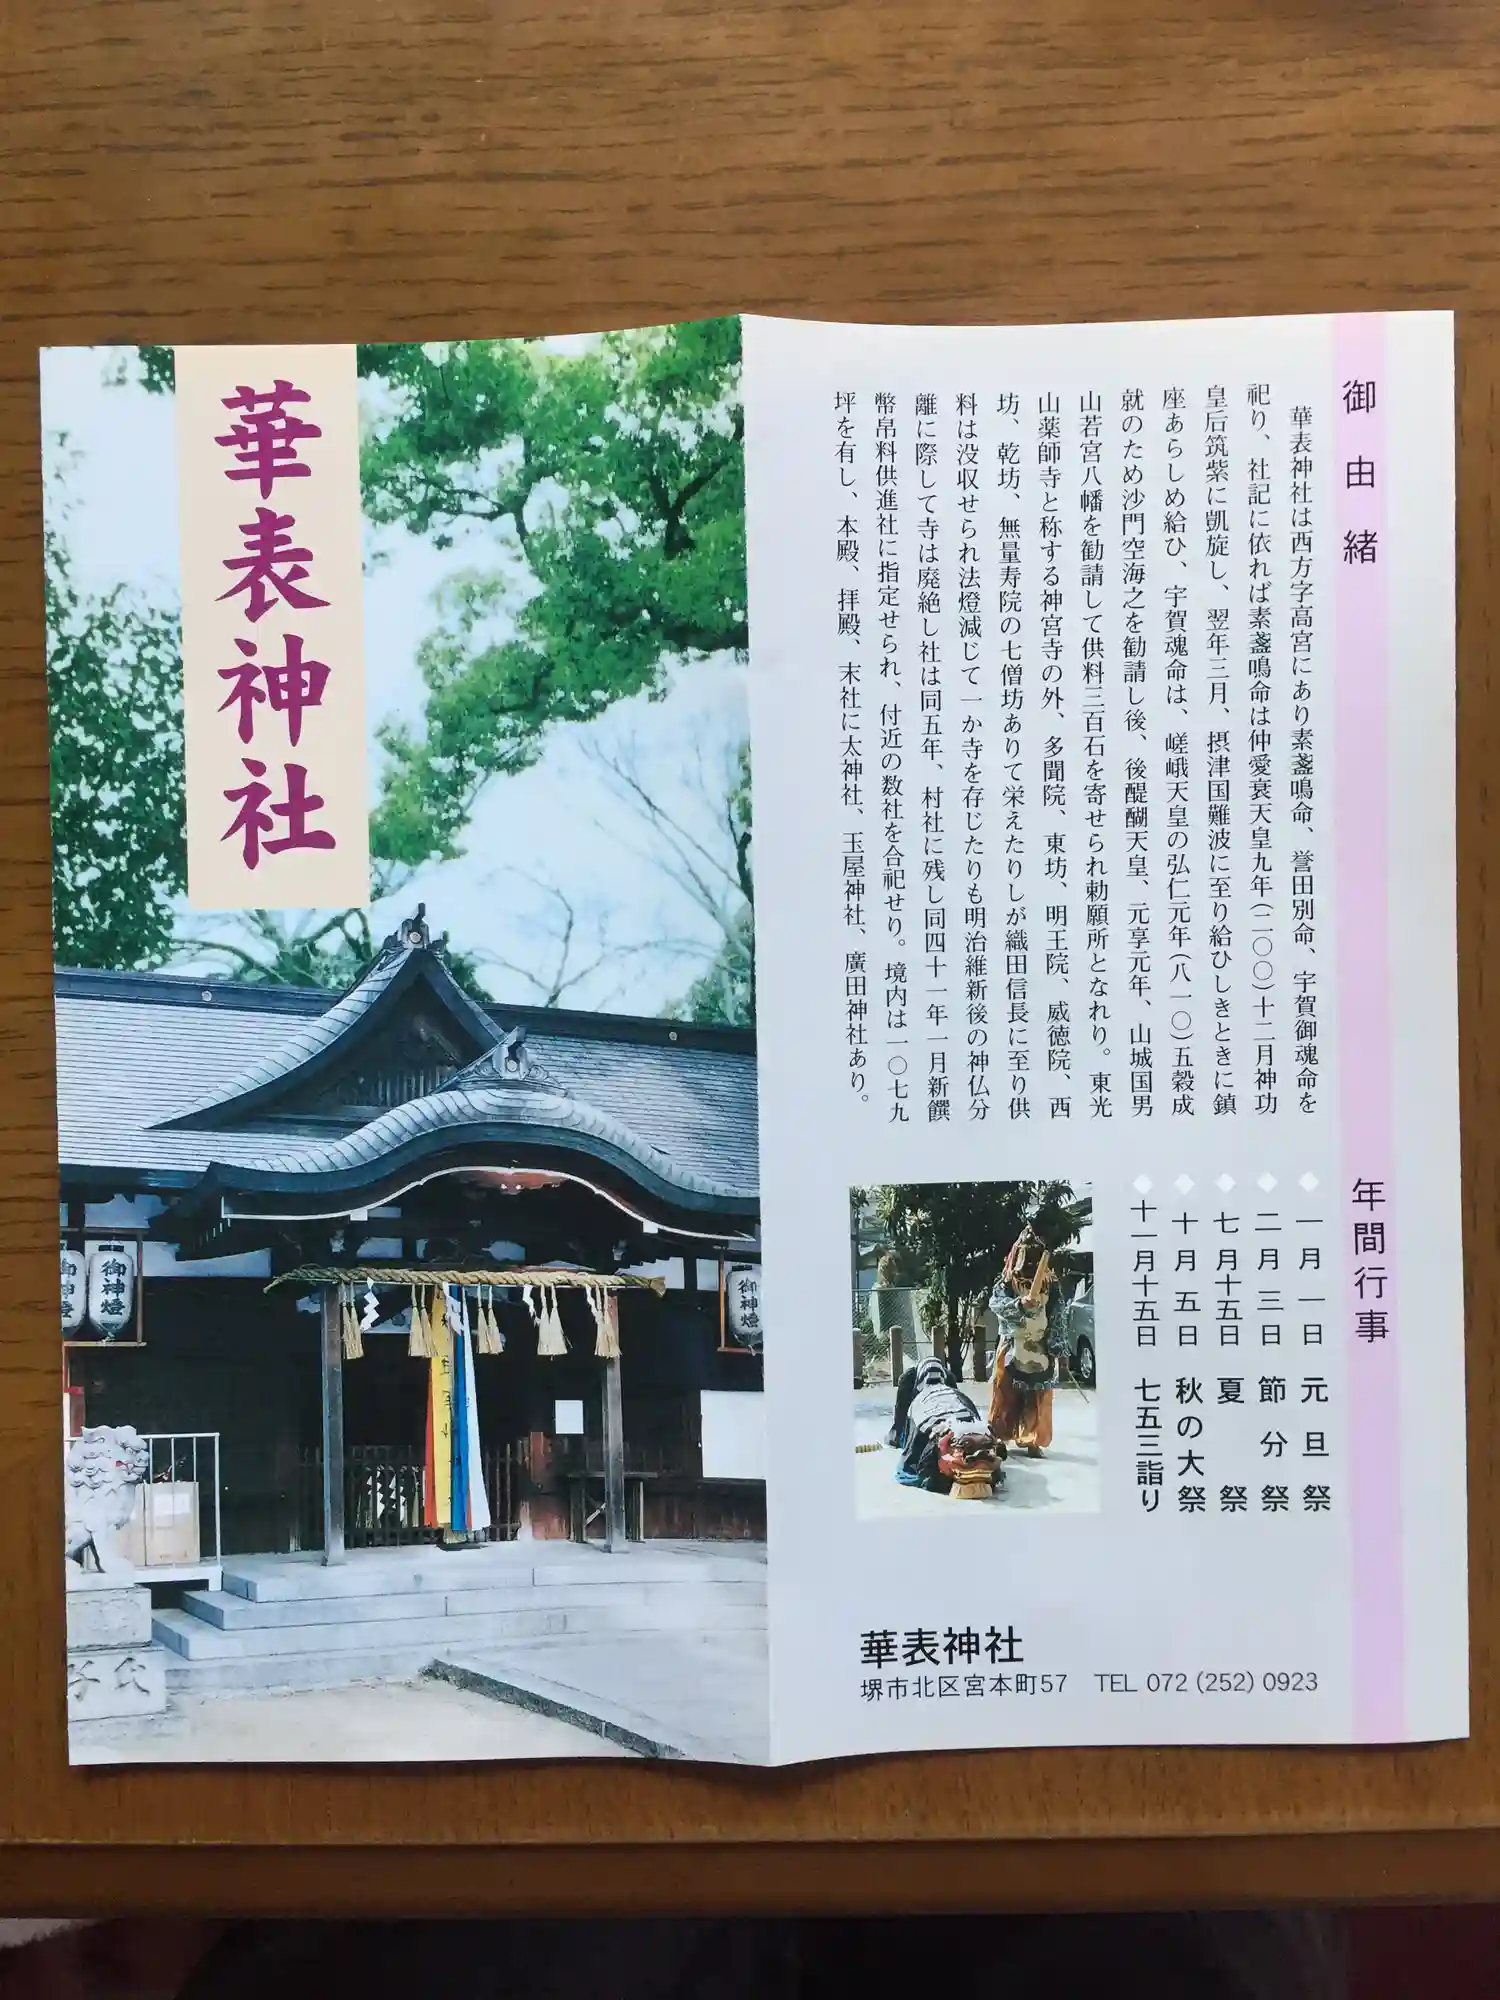 華表神社
御神燈
御神燈
御神燈
御由緒
華表神社は西方字高宮にあり素盞鳴命、誉田別命、宇賀御魂命を
祀り、社記に依れば素盞鳴命は仲愛哀天皇九年(二〇〇)十二月神功
皇后筑紫に凱旋し、翌年三月、摂津国難波に至り給ひしきときに鎮
座あらしめ給ひ、宇賀魂命は、嵯峨天皇の弘仁元年(八一〇)五穀成
就のため沙門空海之を勧請し後、後醍醐天皇、元享元年、山城国男
山若宮八幡を勧請して供料三百石を寄せられ勅願所となれり。東光
山薬師寺と称する神宮寺の外、多聞院、東坊、明王院、威徳院、西
坊、乾坊、無量寿院の七僧坊ありて栄えたりしが織田信長に至り供
料は没収せられ法燈減じて一か寺を存じたりも明治維新後の神仏分
離に際して寺は廃絶し社は同五年、村社に残し同四十一年一月新饌
幣帛料供進社に指定せられ、付近の数社を合祀せり。境内は一〇七九
坪を有し、本殿、拝殿、末社に太神社、玉屋神社、廣田神社あり。
年間行事
◆一月一日 元旦祭
◆二月三日 節分祭
◆七月十五日 夏祭
◆十月五日 秋の大祭
◆十一月十五日 七五三詣り
華表神社
堺市北区宮本町57 TEL 072 (252) 0923